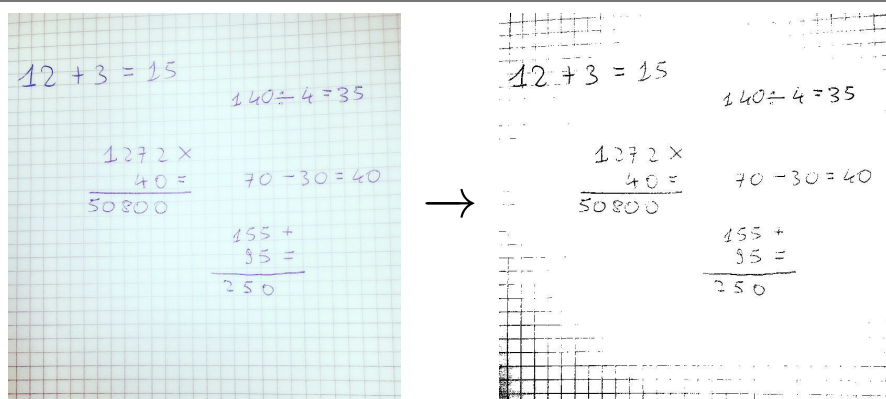 12 + 3 = 15
140 ÷ 4 = 35
1272 ×
40 =
70 - 30 = 40
50800
155 +
95 =
250
12 + 3 = 15
140 ÷ 4 = 35
1272 ×
40 =
70 - 30 = 40
50800
155 +
95 =
250